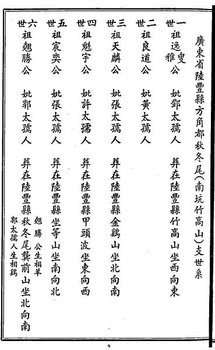 廣東省陸豐縣方角都秋冬尾(南坑竹高山)支世系
一世祖逸叟公 妣鄒太孺人 葬在陸豐縣竹高山坐西向東
雅
二世祖良道公 妣黃太孺人
三世祖天麟公 妣張太孺人 葬在陸豐縣金鷄山坐北向南
四世祖魁宇公 妣許太孺人 葬在陸豐縣甲頭波坐東向西
五世祖宸奕公 妣張太孺人 葬在陸豐縣坐等山坐南向北
六世祖魁勝公 妣郭太孺人 葬在陸豐縣秋冬尾龔前山坐北向南
魁勝公生相羊
郭太孺人生相鷄